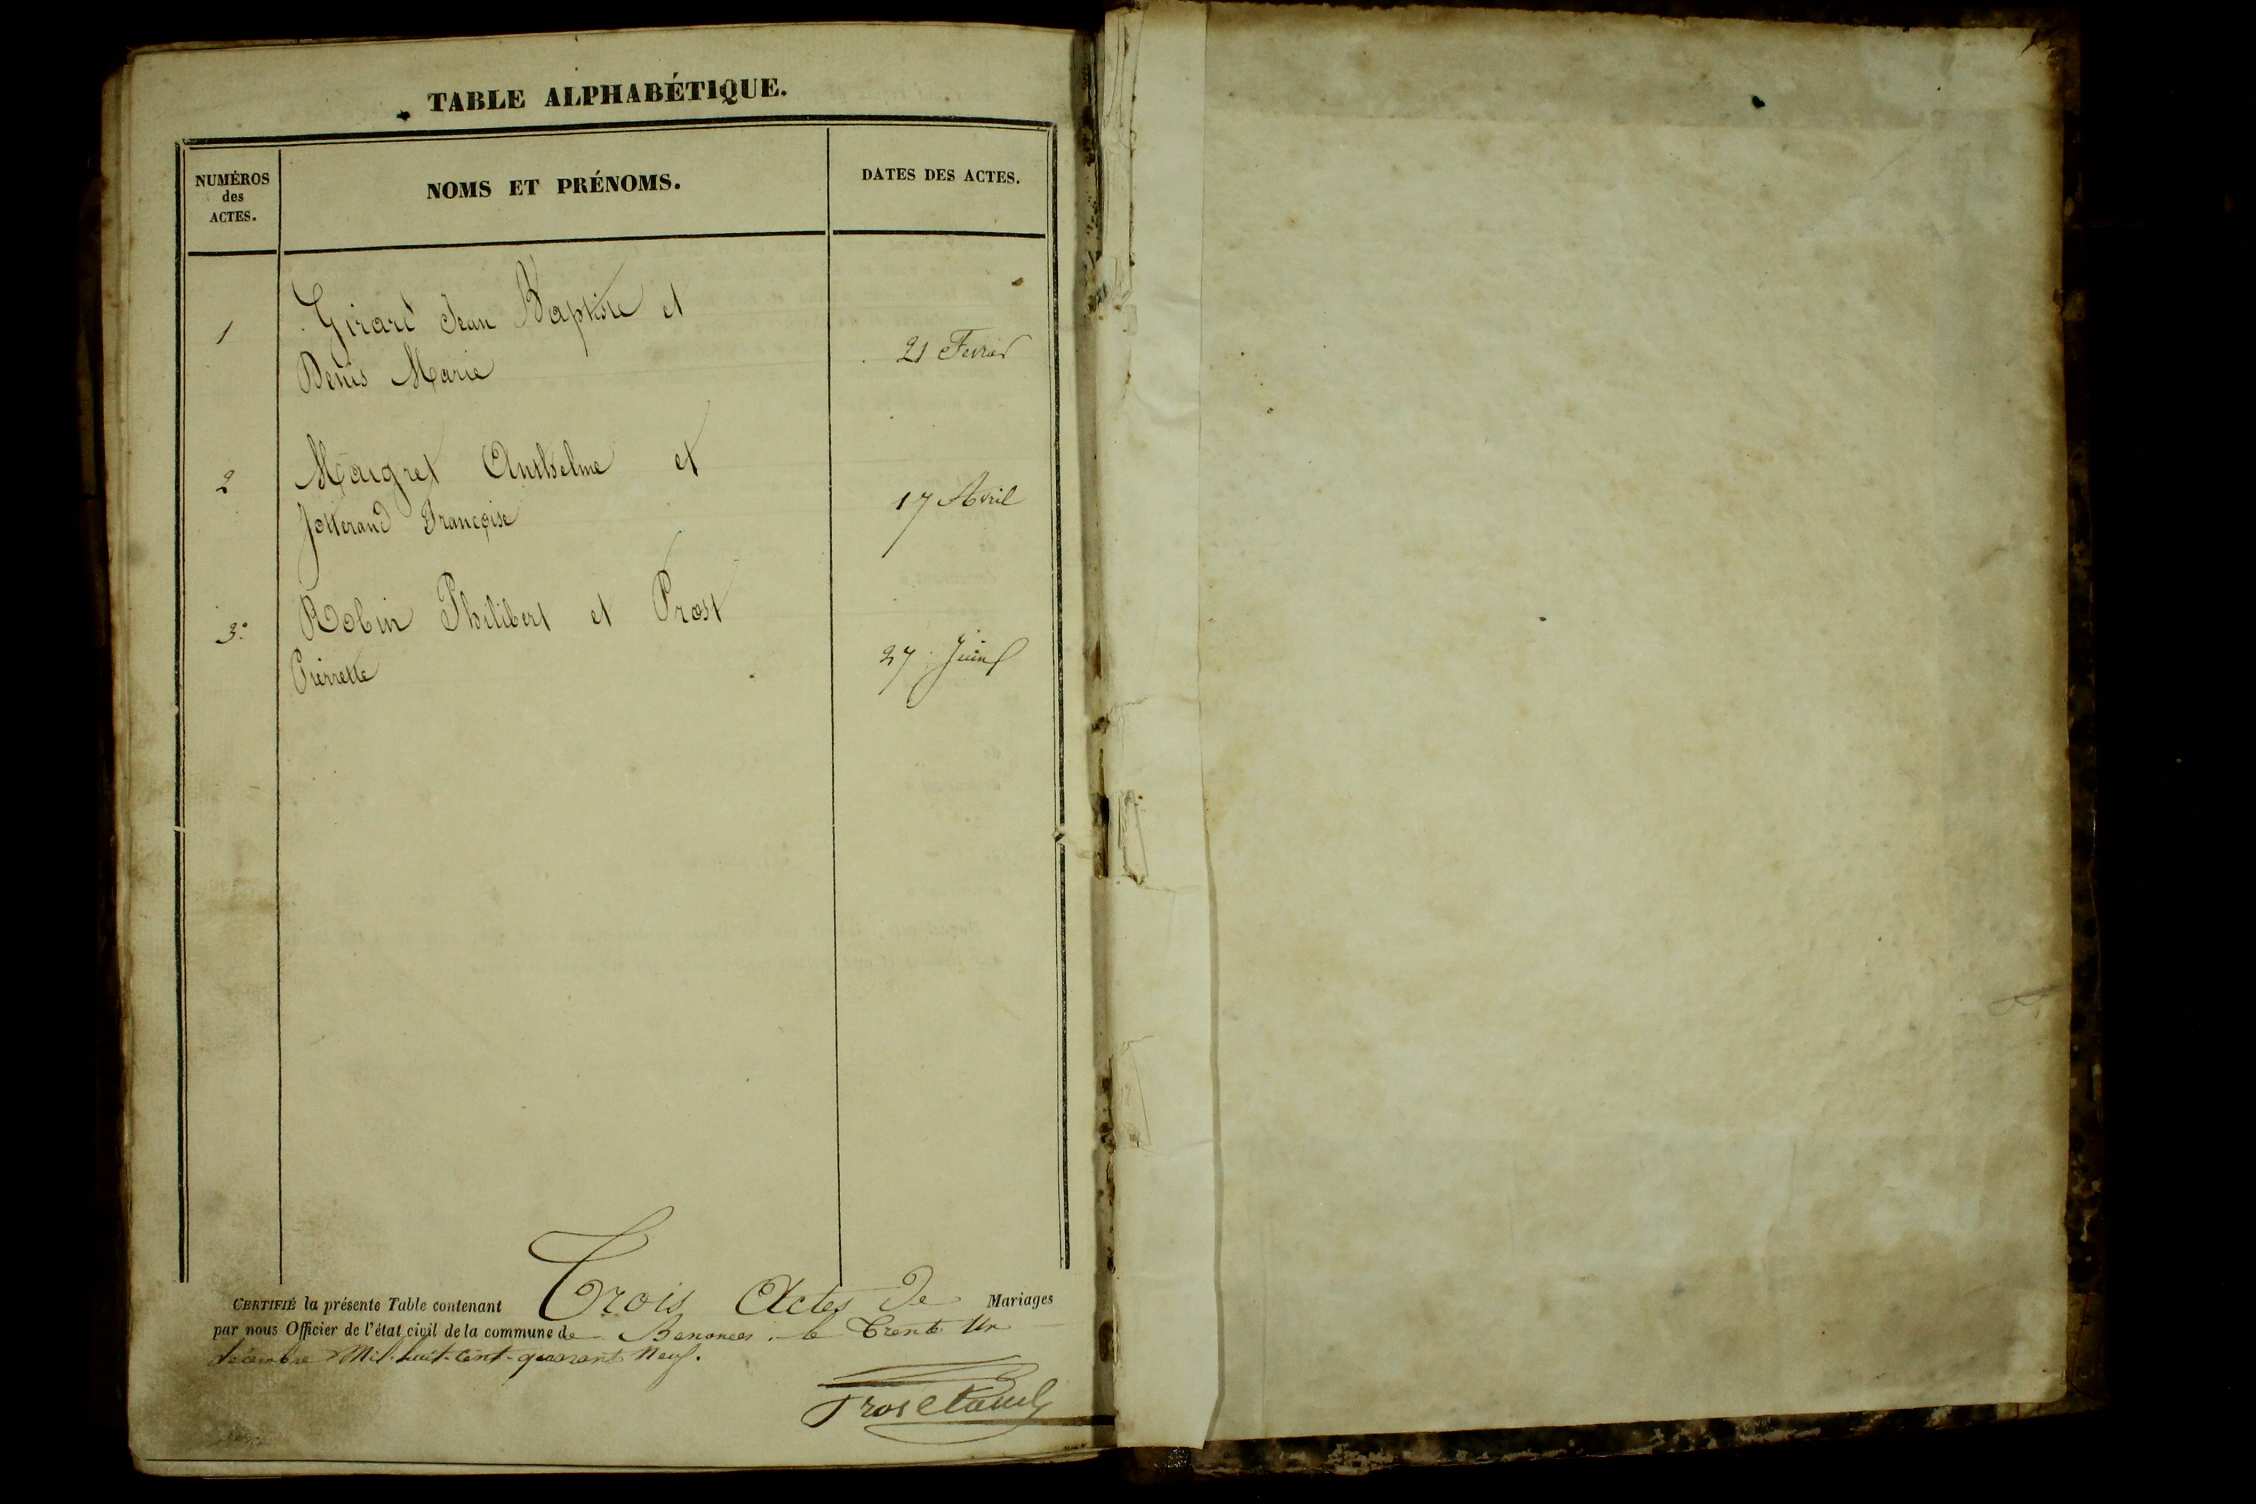 TABLE ALPHABÉTIQUE.
NUMÉROS
des
ACTES.
NOMS ET PRÉNOMS.
DATES DES ACTES.
1
Girard Jean Baptiste et
Denis Marie
21 Fevrier
2
Maigret Anthelme et
Jotterand Françoise
17 Avril
3°
Robin Philibert et Prost
Pierrette
27 Juin
CERTIFIÉ la présente Table contenant Trois Actes de Mariages
par nous Officier de l'état civil de la commune de Benonces le Trente Un
décembre Mil huit-cent-quarante Neuf.